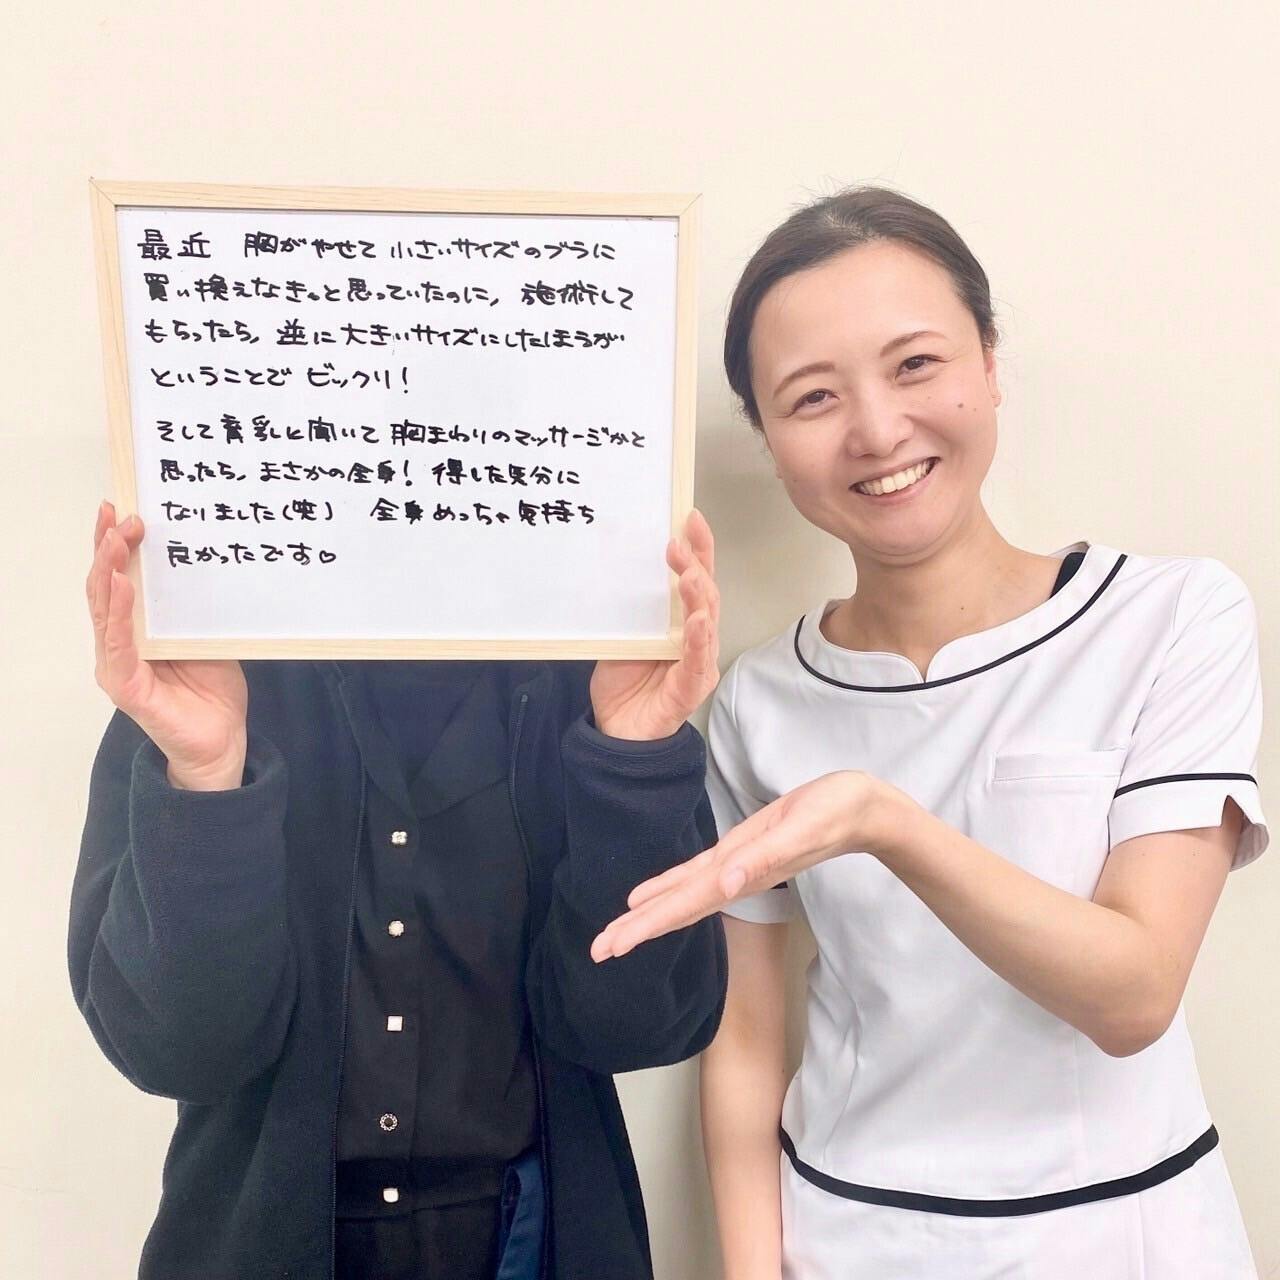 最近 胸がやせて 小さいサイズのブラに
買い換えなきゃと思っていたのに、施術して
もらったら、逆に大きいサイズにしたほうが
ということでビックリ!
そして育乳と聞いて胸まわりのマッサージかと
思ったら、まさかの全身! 得した気分に
なりました(笑) 全身めっちゃ気持ち
良かったです♡